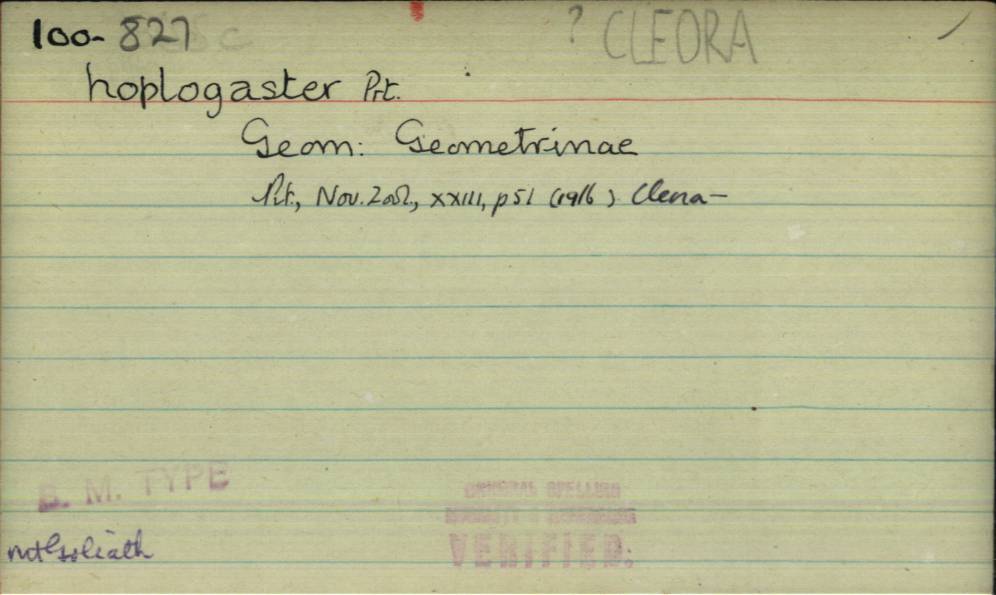 100-827 ? CLEORA
hoplogaster Prt.
Geom: Geometrinae
Prt., Nov. Zool., xxiii, p51 (1916) Clena-
B. M. TYPE
ORIGINAL SPELLING
VERIFIED.
not Goliath